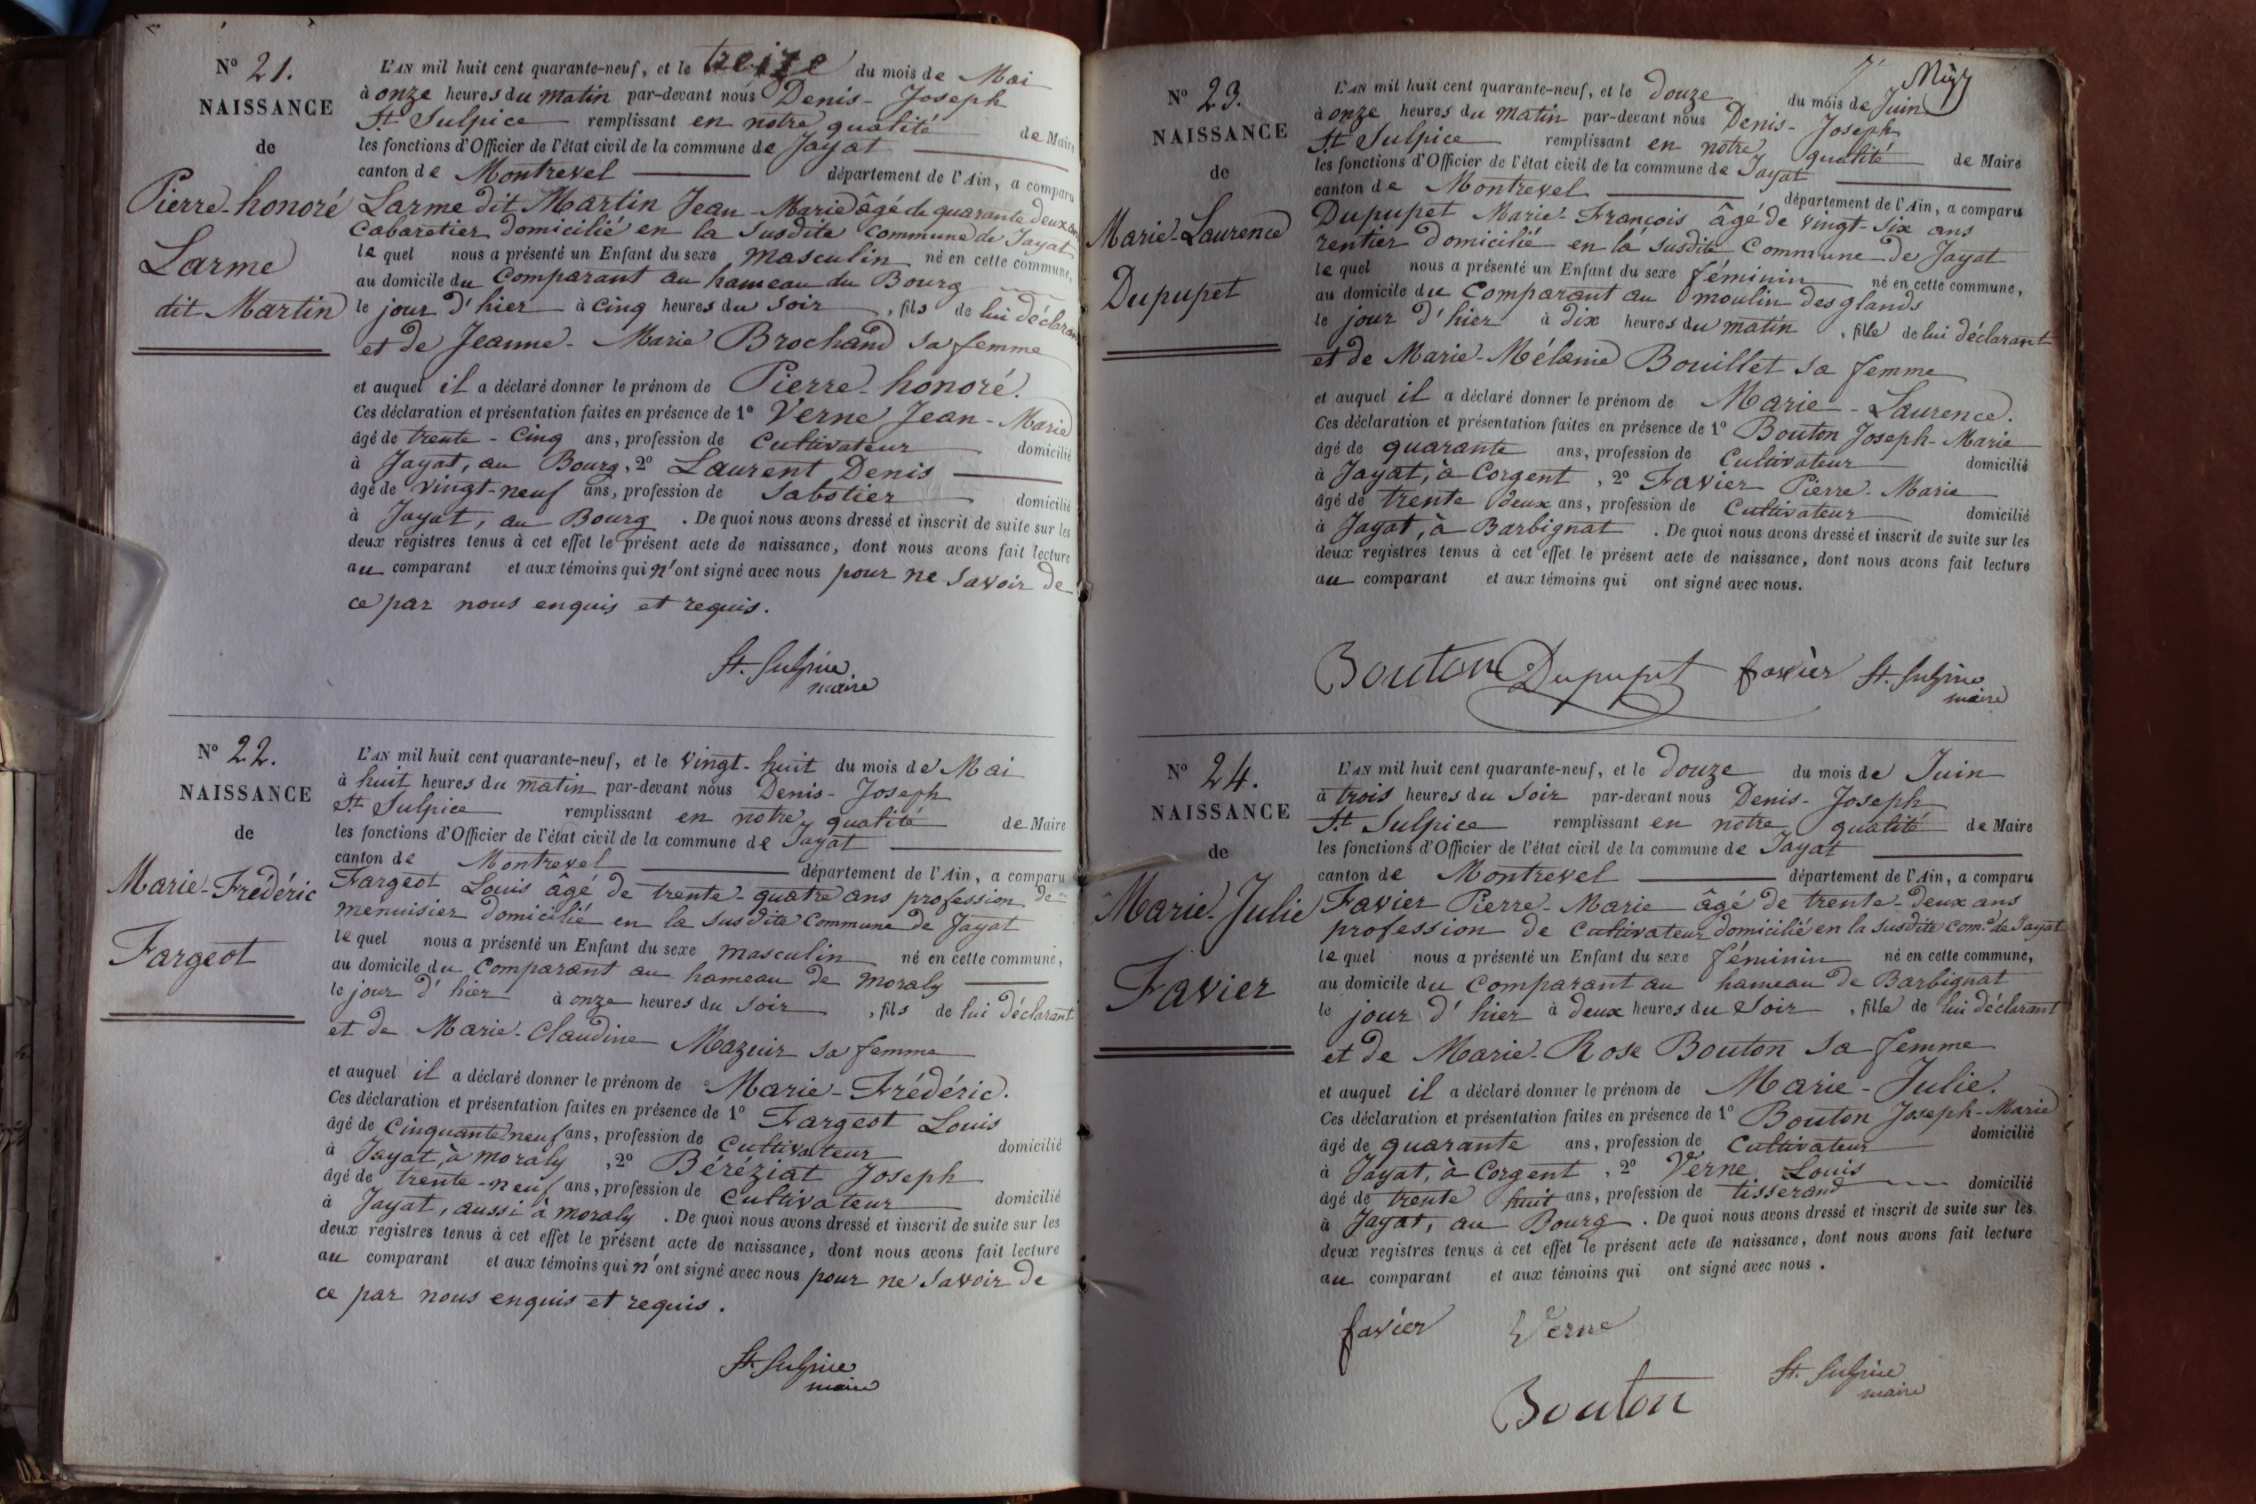 N° 21.
NAISSANCE
de
Pierre-honoré
Larme
dit Martin
L'AN mil huit cent quarante-neuf, et le treize du mois de Mai
à onze heures du matin par-devant nous Denis-Joseph
St Sulpice remplissant en notre qualité de Maire
les fonctions d'Officier de l'état civil de la commune de Jayat
canton de Montrevel département de l'Ain, a comparu
Larme dit Martin Jean-Marie âgé de quarante deux ans
Cabaretier domicilié en la susdite commune de Jayat
lequel nous a présenté un Enfant du sexe masculin né en cette commune,
au domicile du Comparant au hameau du Bourg
le jour d'hier à cinq heures du soir, fils de lui déclarant
et de Jeanne-Marie Brochand sa femme
et auquel il a déclaré donner le prénom de Pierre-honoré.
Ces déclaration et présentation faites en présence de 1° Verne Jean-Marie
âgé de trente-cinq ans, profession de Cultivateur domicilié
à Jayat, au Bourg, 2° Laurent Denis
âgé de vingt-neuf ans, profession de Sabotier domicilié
à Jayat, au Bourg. De quoi nous avons dressé et inscrit de suite sur les
deux registres tenus à cet effet le présent acte de naissance, dont nous avons fait lecture
au comparant et aux témoins qui n'ont signé avec nous pour ne savoir de
ce par nous enquis et requis.
St. Sulpice
maire
N° 22.
NAISSANCE
de
Marie-Frédéric
Fargeot
L'AN mil huit cent quarante-neuf, et le vingt-huit du mois de Mai
à huit heures du matin par-devant nous Denis-Joseph
St Sulpice remplissant en notre qualité de Maire
les fonctions d'Officier de l'état civil de la commune de Jayat
canton de Montrevel département de l'Ain, a comparu
Fargeot Louis âgé de trente-quatre ans profession de
menuisier domicilié en la susdite Commune de Jayat
lequel nous a présenté un Enfant du sexe masculin né en cette commune,
au domicile du Comparant au hameau de Moraly
le jour d'hier à onze heures du soir, fils de lui déclarant
et de Marie-Claudine Mazuir sa femme
et auquel il a déclaré donner le prénom de Marie-Frédéric.
Ces déclaration et présentation faites en présence de 1° Fargeot Louis
âgé de Cinquante neuf ans, profession de Cultivateur domicilié
à Jayat, à moraly, 2° Béréziat Joseph
âgé de trente-neuf ans, profession de Cultivateur domicilié
à Jayat, aussi à moraly. De quoi nous avons dressé et inscrit de suite sur les
deux registres tenus à cet effet le présent acte de naissance, dont nous avons fait lecture
au comparant et aux témoins qui n'ont signé avec nous pour ne savoir de
ce par nous enquis et requis.
St. Sulpice
maire
N° 23.
NAISSANCE
de
Marie-Laurence
Dupupet
L'AN mil huit cent quarante-neuf, et le douze du mois de Juin
à onze heures du matin par-devant nous Denis-Joseph
St Sulpice remplissant en notre qualité de Maire
les fonctions d'Officier de l'état civil de la commune de Jayat
canton de Montrevel département de l'Ain, a comparu
Dupupet Marie-François âgé de vingt-six ans
rentier domicilié en la susdite Commune de Jayat
lequel nous a présenté un Enfant du sexe féminin né en cette commune,
au domicile du Comparant au moulin des glands
le jour d'hier à dix heures du matin, fille de lui déclarant
et de Marie-Mélanie Bouillet sa femme
et auquel il a déclaré donner le prénom de Marie-Laurence.
Ces déclaration et présentation faites en présence de 1° Bouton Joseph-Marie
âgé de quarante ans, profession de Cultivateur domicilié
à Jayat, à Corgent, 2° Favier Pierre-Marie
âgé de trente deux ans, profession de Cultivateur domicilié
à Jayat, à Barbignat. De quoi nous avons dressé et inscrit de suite sur les
deux registres tenus à cet effet le présent acte de naissance, dont nous avons fait lecture
au comparant et aux témoins qui ont signé avec nous.
Bouton Dupupet favier St. Sulpice
maire
N° 24.
NAISSANCE
de
Marie-Julie
Favier
L'AN mil huit cent quarante-neuf, et le douze du mois de Juin
à trois heures du soir par-devant nous Denis-Joseph
St Sulpice remplissant en notre qualité de Maire
les fonctions d'Officier de l'état civil de la commune de Jayat
canton de Montrevel département de l'Ain, a comparu
Favier Pierre-Marie âgé de trente-deux ans
profession de Cultivateur domicilié en la susdite com.e de Jayat
lequel nous a présenté un Enfant du sexe féminin né en cette commune,
au domicile du comparant au hameau de Barbignat
le jour d'hier à deux heures du soir, fille de lui déclarant
et de Marie-Rose Bouton sa femme
et auquel il a déclaré donner le prénom de Marie-Julie.
Ces déclaration et présentation faites en présence de 1° Bouton Joseph-Marie
âgé de quarante ans, profession de Cultivateur domicilié
à Jayat, à Corgent, 2° Verne Louis
âgé de trente huit ans, profession de tisserand domicilié
à Jayat, au Bourg. De quoi nous avons dressé et inscrit de suite sur les
deux registres tenus à cet effet le présent acte de naissance, dont nous avons fait lecture
au comparant et aux témoins qui ont signé avec nous.
favier Verne
St. Sulpice
maire
Bouton